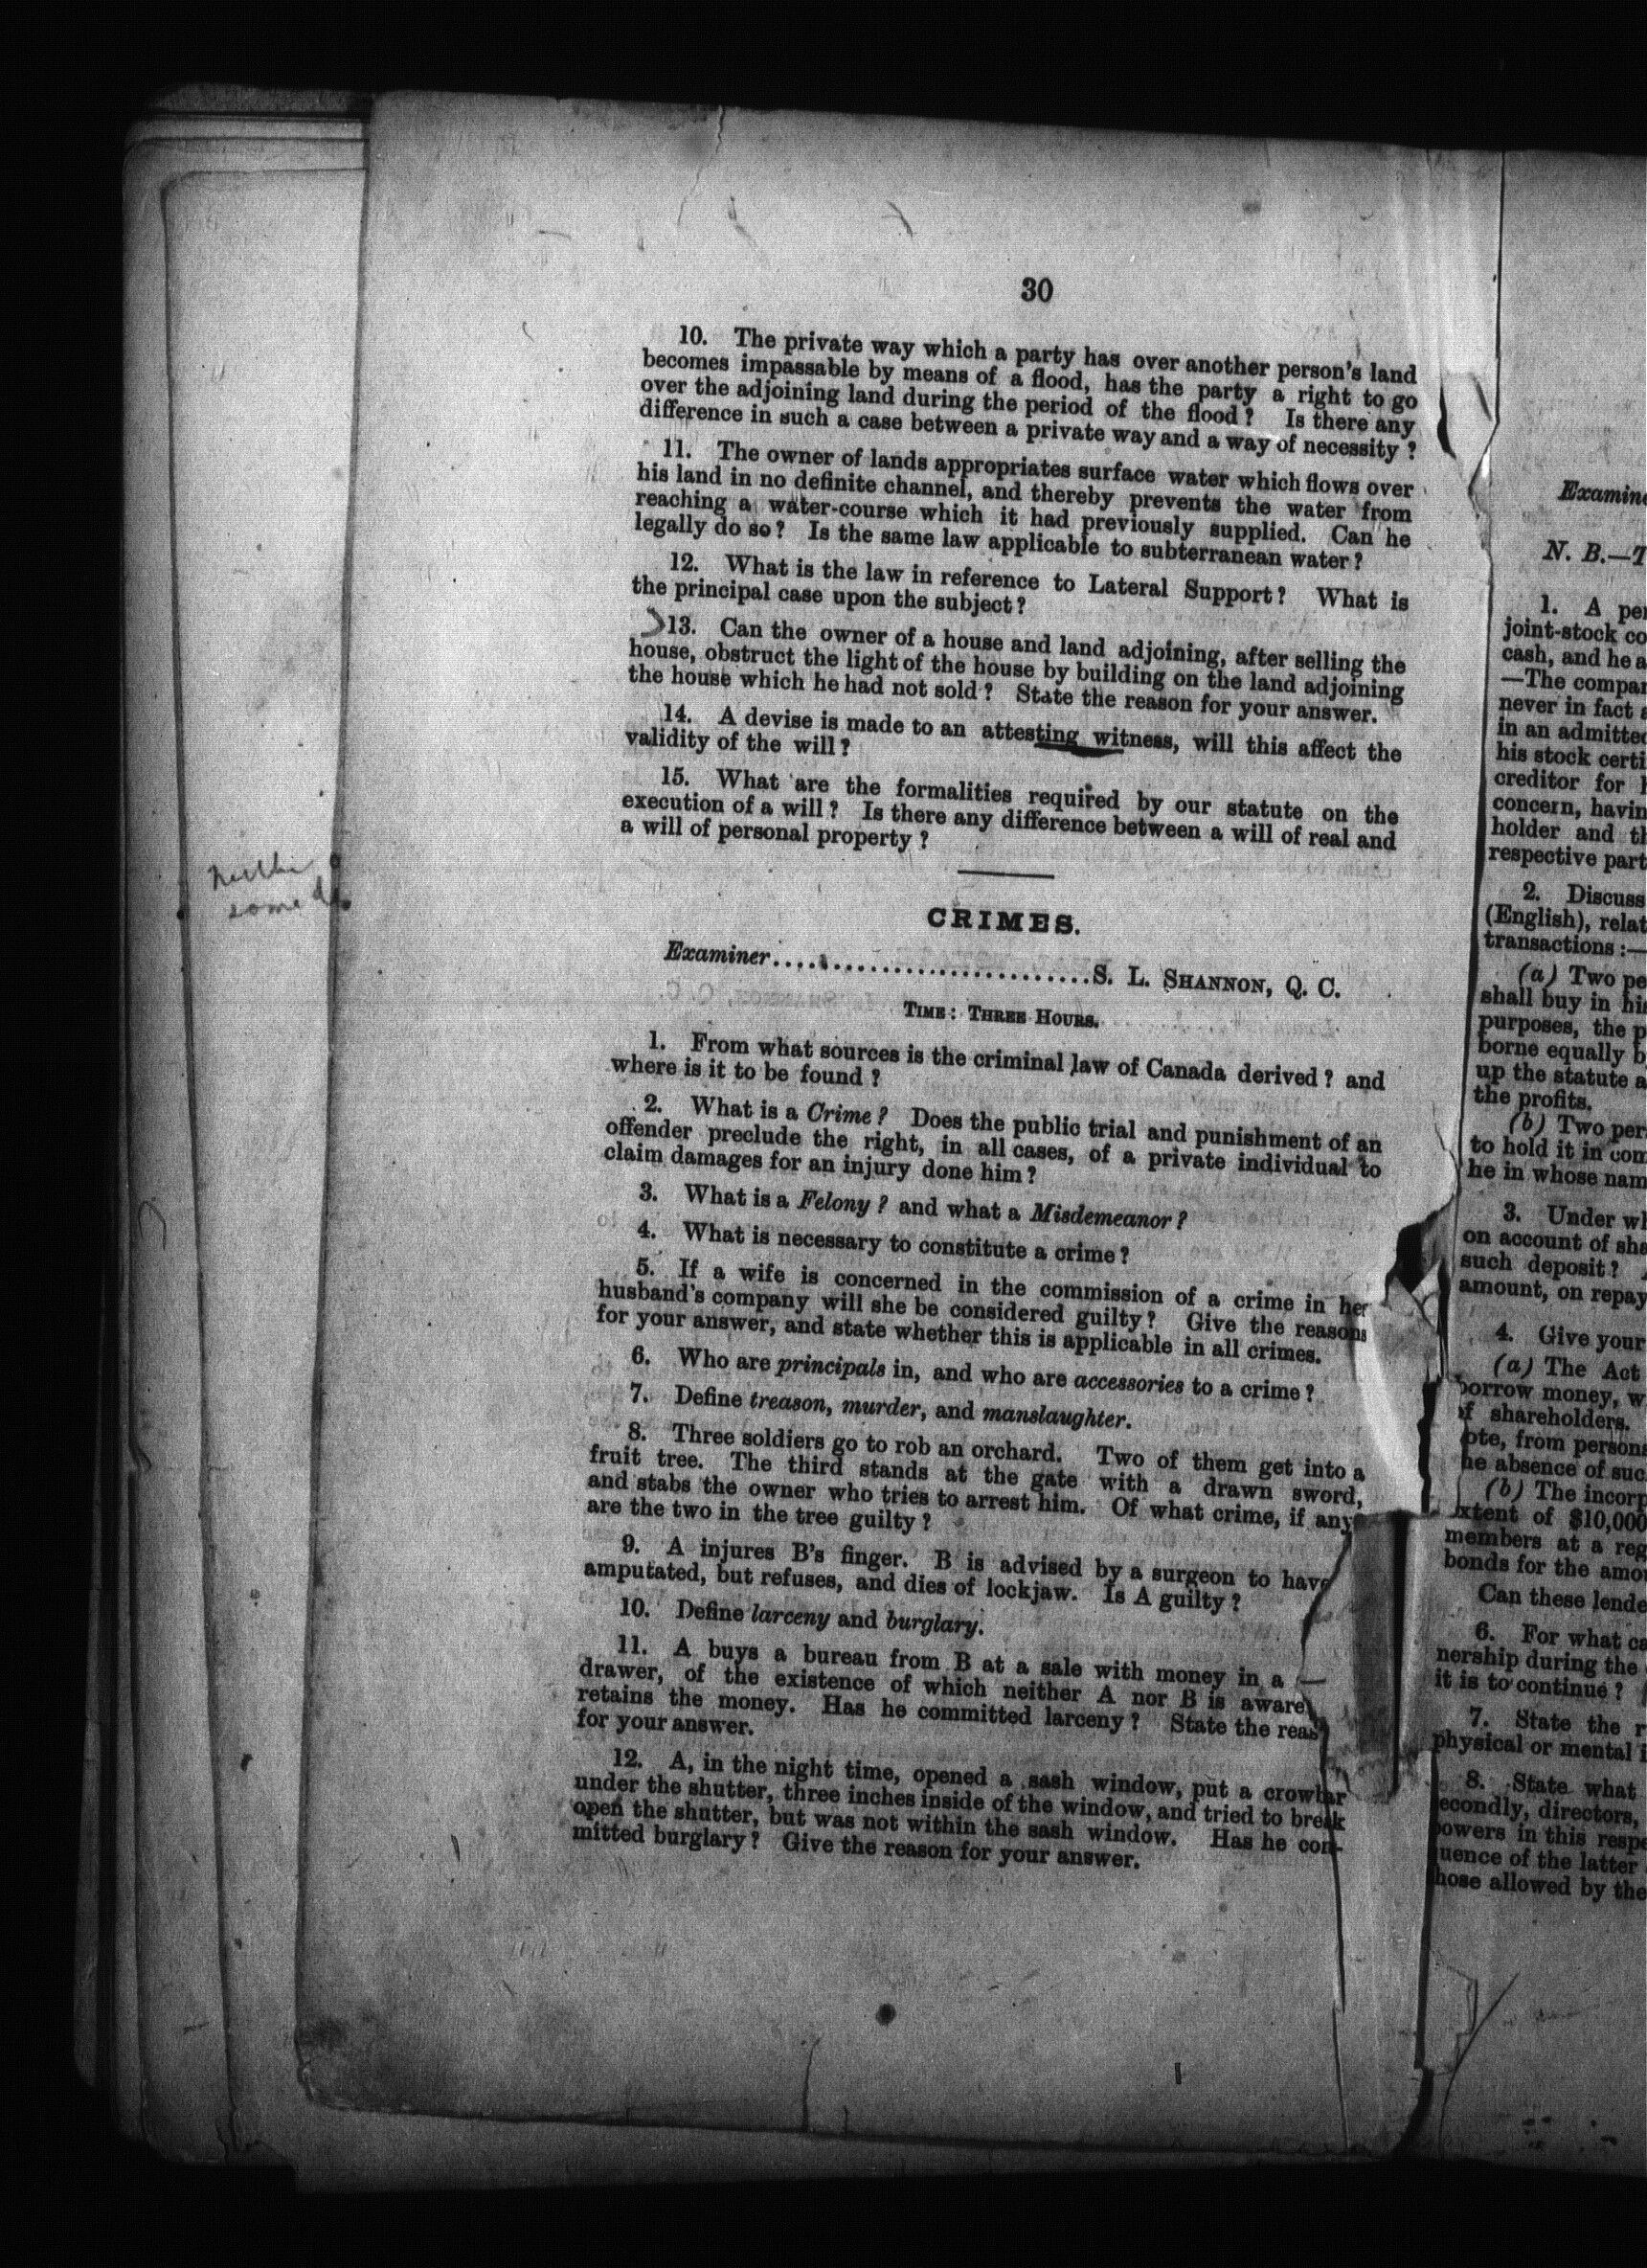 30
10. The private way which a party has over another person's land
becomes impassable by means of a flood, has the party a right to go
over the adjoining land during the period of the flood? Is there any
difference in such a case between a private way and a way of necessity?
11. The owner of lands appropriates surface water which flows over
his land in no definite channel, and thereby prevents the water from
reaching a water-course which it had previously supplied. Can he
legally do so? Is the same law applicable to subterranean water?
12. What is the law in reference to Lateral Support? What is
the principal case upon the subject?
13. Can the owner of a house and land adjoining, after selling the
house, obstruct the light of the house by building on the land adjoining
the house which he had not sold? State the reason for your answer.
14. A devise is made to an attesting witness, will this affect the
validity of the will?
15. What are the formalities required by our statute on the
execution of a will? Is there any difference between a will of real and
a will of personal property?
CRIMES.
Examiner..............................S. L. SHANNON, Q. C.
TIME: THREE HOURS.
1. From what sources is the criminal law of Canada derived? and
where is it to be found?
2. What is a Crime? Does the public trial and punishment of an
offender preclude the right, in all cases, of a private individual to
claim damages for an injury done him?
3. What is a Felony? and what a Misdemeanor?
4. What is necessary to constitute a crime?
5. If a wife is concerned in the commission of a crime in her
husband's company will she be considered guilty? Give the reasons
for your answer, and state whether this is applicable in all crimes.
6. Who are principals in, and who are accessories to a crime?
7. Define treason, murder, and manslaughter.
8. Three soldiers go to rob an orchard. Two of them get into a
fruit tree. The third stands at the gate with a drawn sword,
and stabs the owner who tries to arrest him. Of what crime, if any
are the two in the tree guilty?
9. A injures B's finger. B is advised by a surgeon to have
amputated, but refuses, and dies of lockjaw. Is A guilty?
10. Define larceny and burglary.
11. A buys a bureau from B at a sale with money in a
drawer, of the existence of which neither A nor B is aware
retains the money. Has he committed larceny? State the reas
for your answer.
12. A, in the night time, opened a sash window, put a crowbar
under the shutter, three inches inside of the window, and tried to break
open the shutter, but was not within the sash window. Has he com-
mitted burglary? Give the reason for your answer.
Examine
N. B.—T
1. A per
joint-stock co
cash, and he a
—The compan
never in fact a
in an admitted
his stock certi
creditor for
concern, havin
holder and th
respective part
2. Discuss
(English), relat
transactions:—
(a) Two pe
shall buy in hi
purposes, the p
borne equally b
up the statute a
the profits.
(b) Two per
to hold it in com
he in whose nam
3. Under wh
on account of sha
such deposit?
amount, on repay
4. Give your
(a) The Act
borrow money, w
of shareholders.
ote, from persons
he absence of suc
(b) The incorp
xtent of $10,000
members at a reg
bonds for the amo
Can these lende
6. For what ca
nership during the
it is to continue?
7. State the r
physical or mental i
8. State what
econdly, directors,
powers in this resp
uence of the latter
hose allowed by the